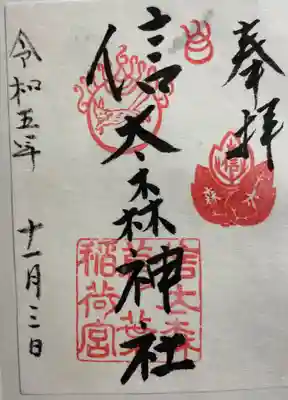 奉拝
信
信太森神社
信太森
葛葉
稲荷宮
令和五年 十一月三日